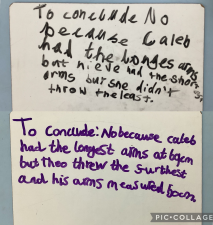 To conclude No
because Caleb
had the longes arms
but nieve had the short
arms but she didn't
throw the least.
To conclude: No because caleb
had the longest arms at 69cm
but theo threw the furthest
and his arms measured 60cm
PIC-COLLAGE